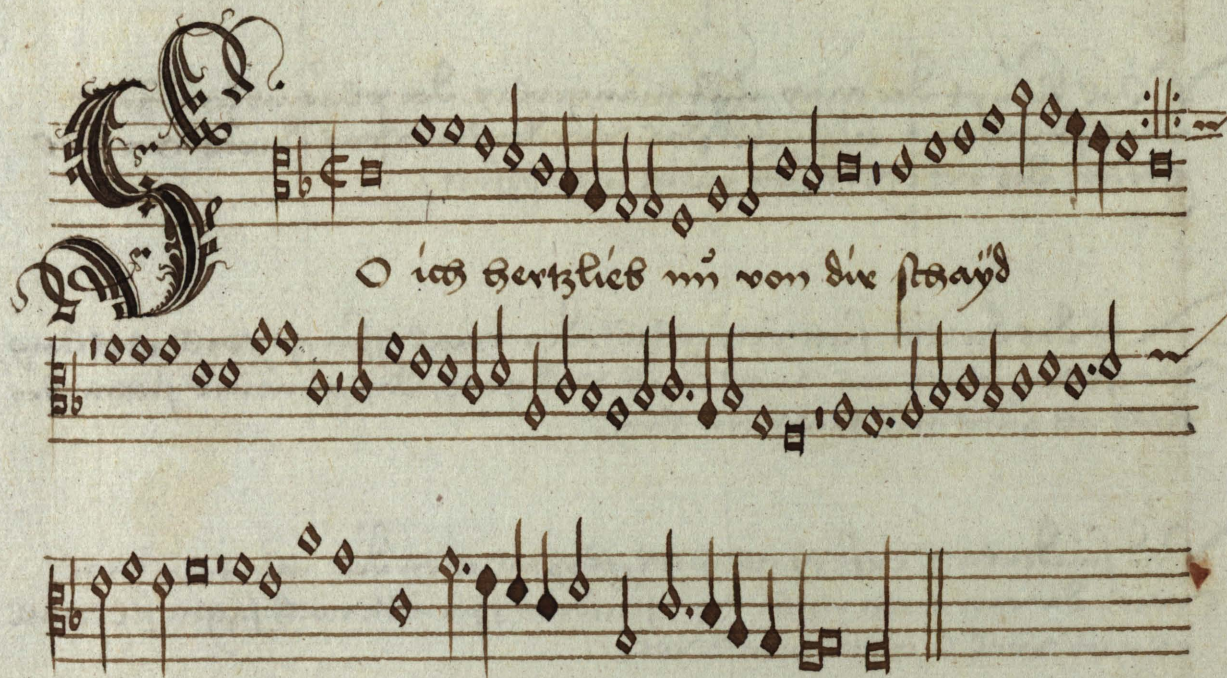 SO ich hertzlieb nu͂ von dir schayd